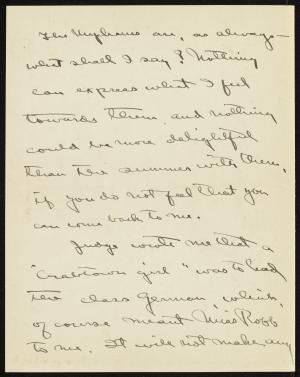 The Mynhans are, as always—
what shall I say? Nothing
can express what I feel
towards them, and nothing
could be more delightful
than the summer with them,
if you do not feel that you
can come back to me.
Judge wrote me that a
"Crabtown girl" was to lead
the class German, which,
of course meant Miss Robb
to me. It will not make any